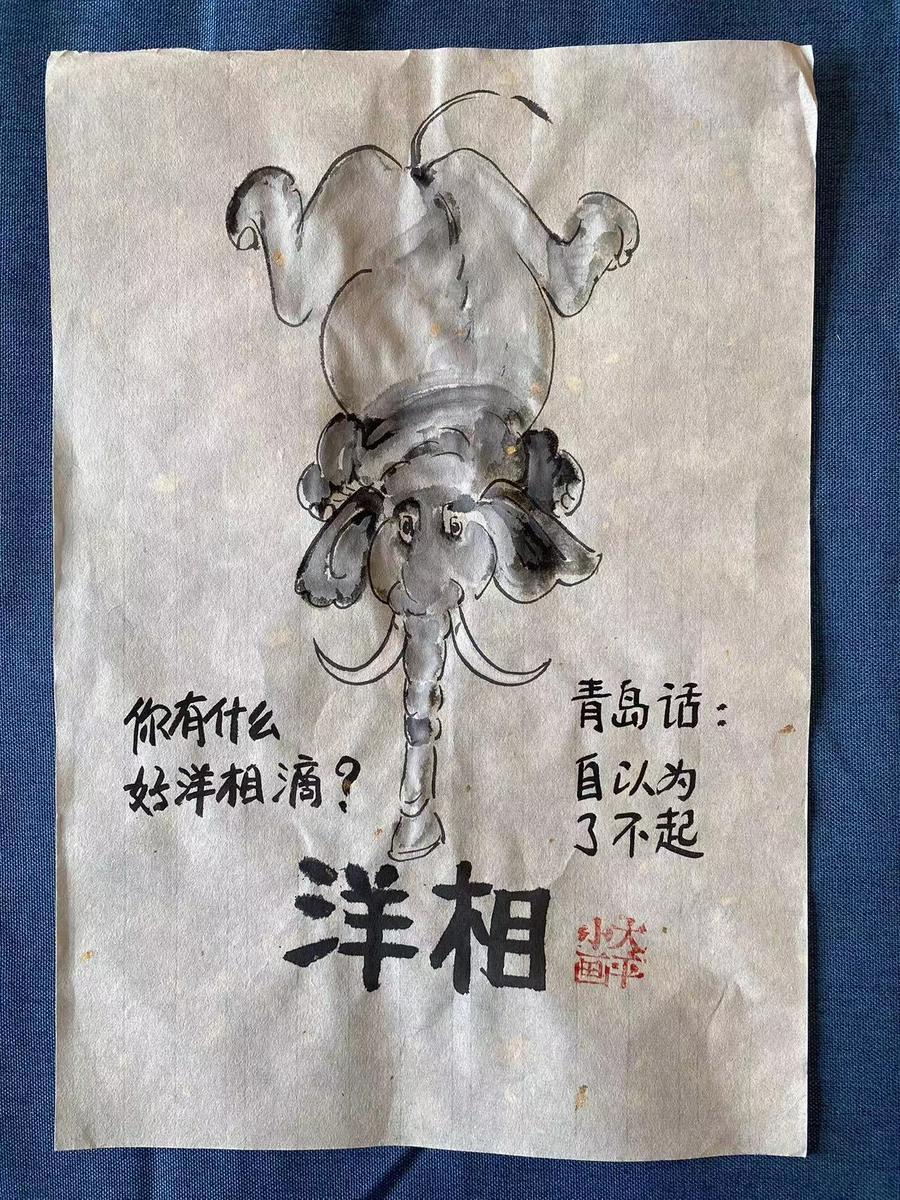 你有什么
好洋相滴？
青岛话：
自以为
了不起
洋相
大平
小画